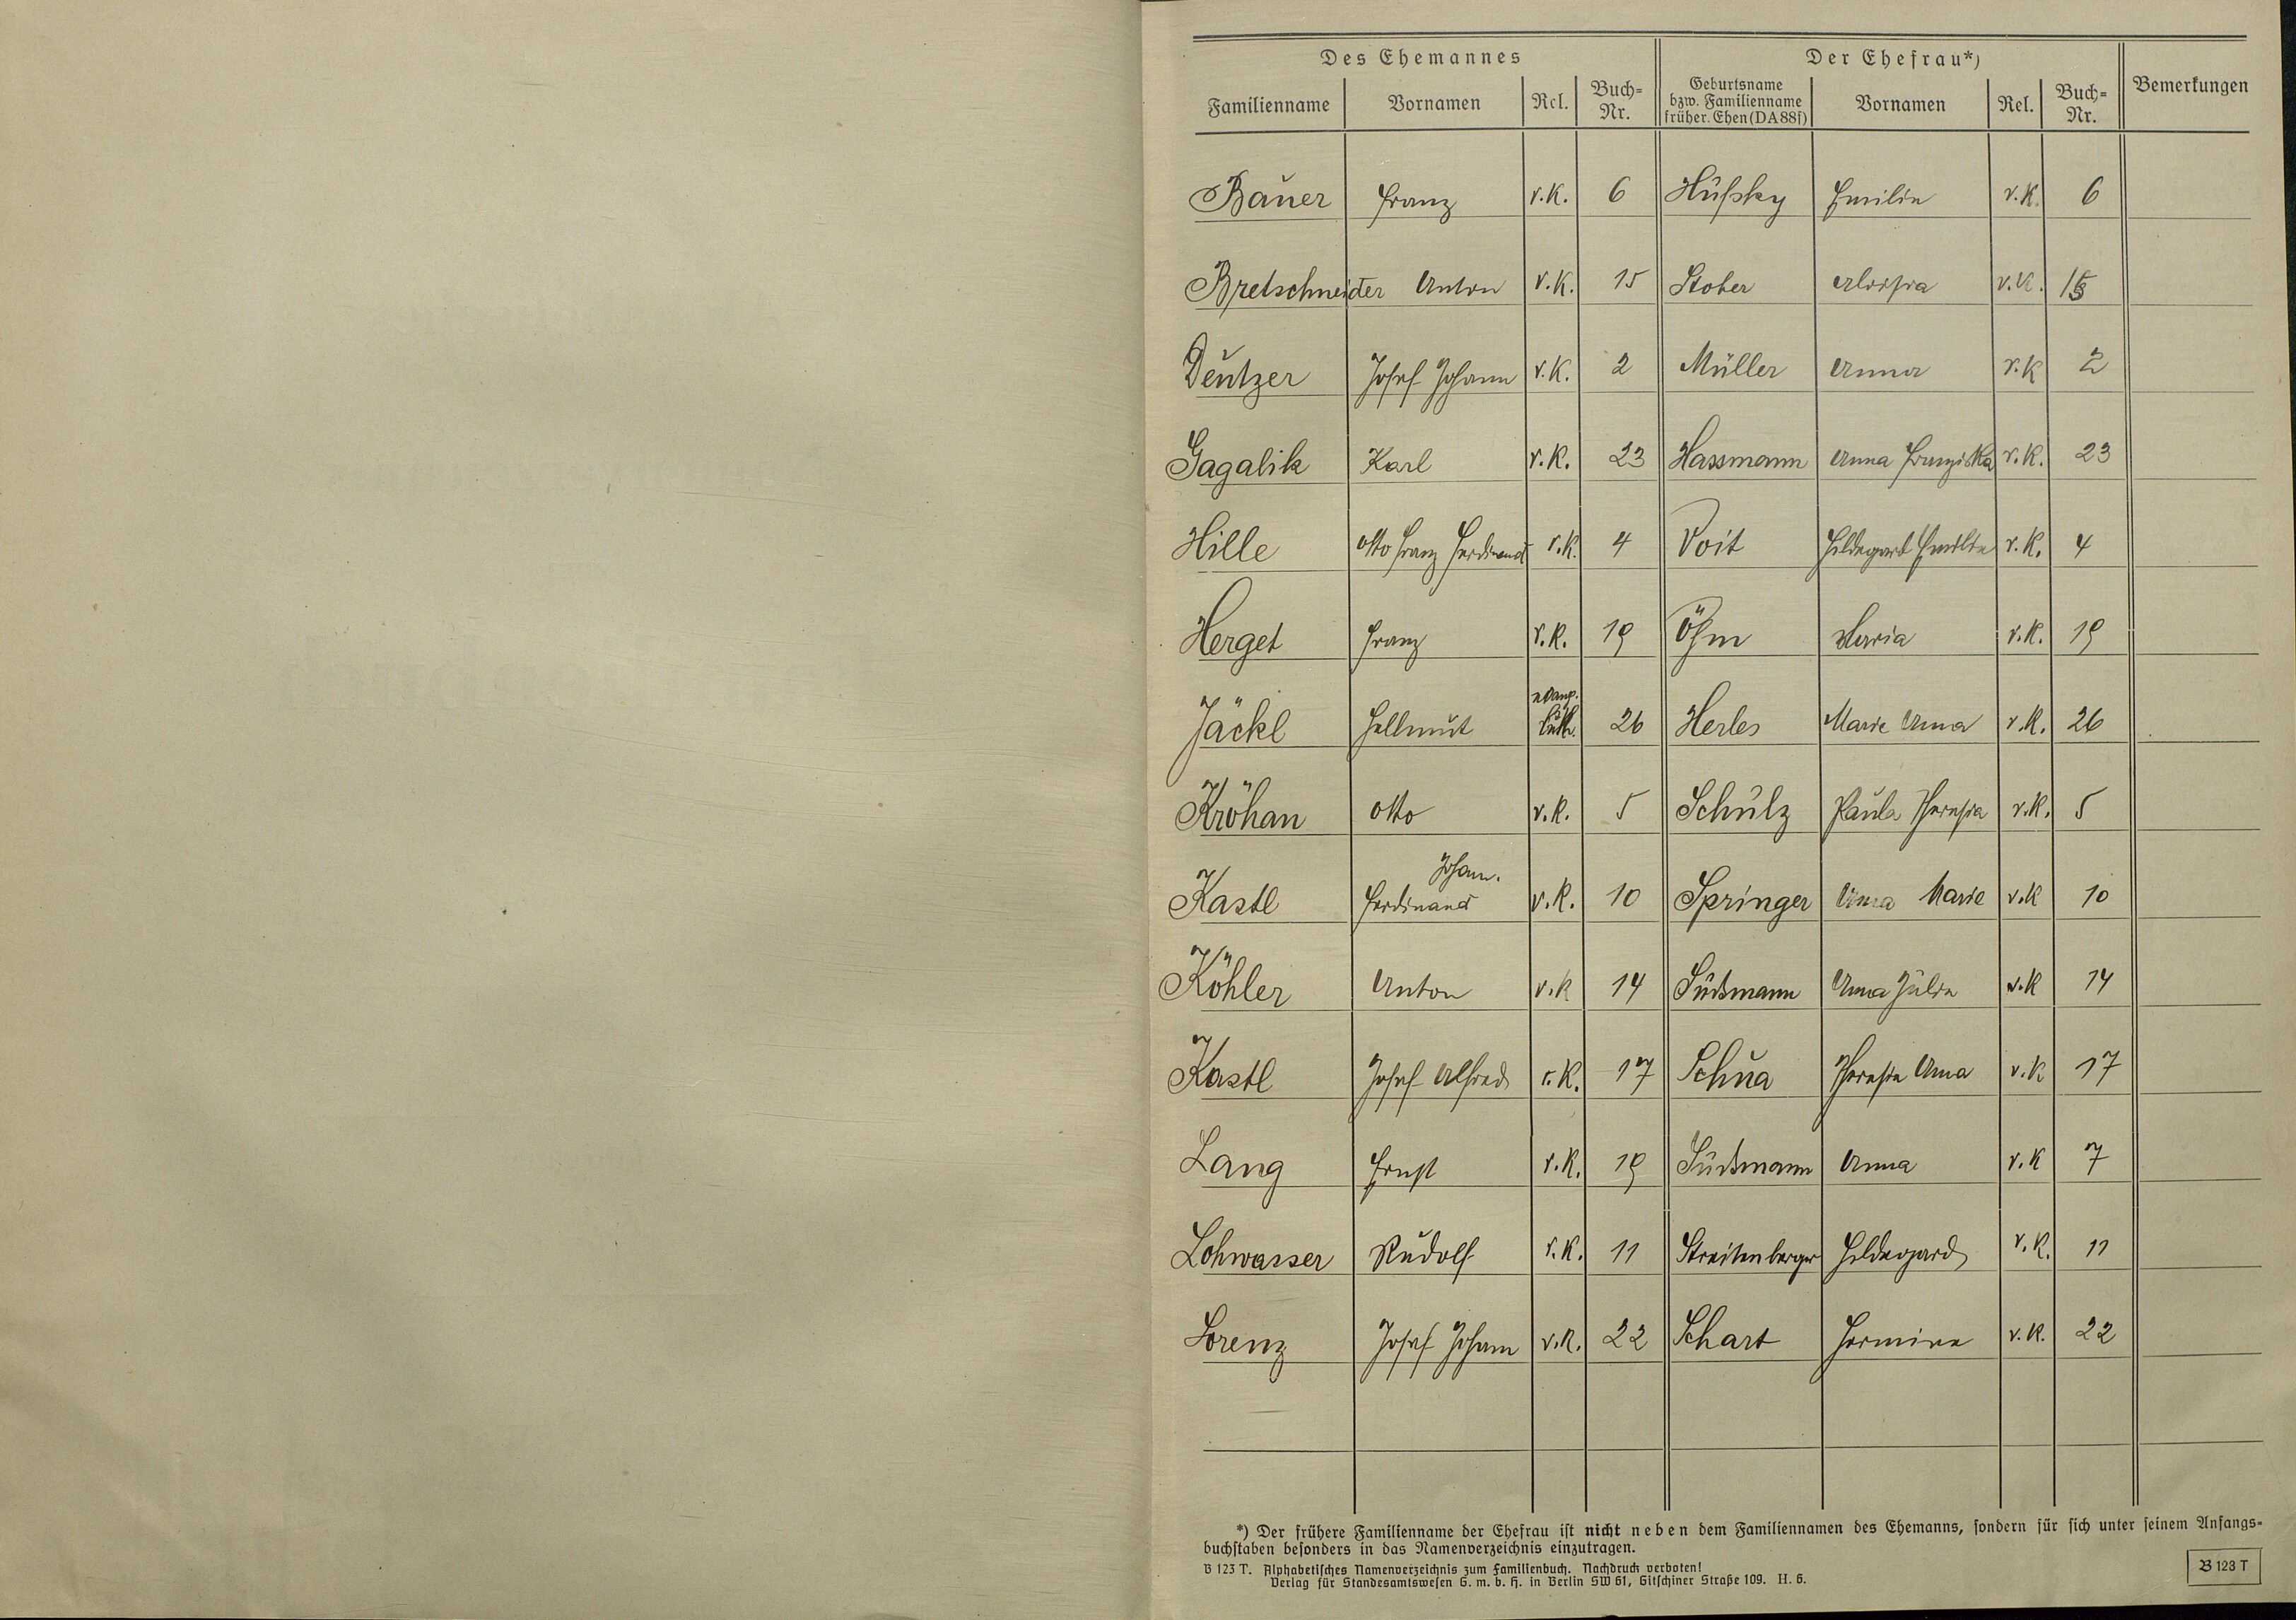 Des Ehemannes Der Ehefrau*) Bemerkungen
Familienname Vornamen Rel. Buch=Nr. Geburtsname bzw. Familienname früher. Ehen (DA 88f) Vornamen Rel. Buch=Nr.
Bauer Franz r.k. 6 Hüßky Emilie r.k. 6
Bretschneider Anton r.k. 15 Stober Aloisia r.k. 15
Deutzer Josef Johann r.k. 2 Müller Anna r.k 2
Gagalik Karl r.k. 23 Hassmann Anna Franziska r.k. 23
Hille Otto Franz Ferdinand r.k. 4 Voit Hildegard Emilie r.k. 4
Herget Franz r.k. 19 Öhm Maria r.k. 19
Jäckl Hellmut evang. luth. 26 Herles Marie Anna r.k. 26
Kröhan Otto r.k. 5 Schulz Paula Theresia r.k. 5
Kastl Ferdinand Johann. r.k. 10 Springer Anna Marie r.k 10
Köhler Anton r.k 14 Südmann Anna Julie r.k 14
Kastl Josef Alfred r.k. 17 Schua Theresia Anna r.k 17
Lang Ernst r.k. 19 Anna r.k 7
Lohwasser Rudolf r.k. 11 Streitenberger Hildegard r.k. 11
Lorenz Josef Johann r.k. 22 Schart Hermine r.k. 22
*) Der frühere Familienname der Ehefrau ist nicht neben dem Familiennamen des Ehemanns, sondern für sich unter seinem Anfangs=
buchstaben besonders in das Namenverzeichnis einzutragen.
B 123 T. Alphabetisches Namenverzeichnis zum Familienbuch. Nachdruck verboten!
Verlag für Standesamtswesen G. m. b. H. in Berlin SW 61, Gitschiner Straße 109. H. 6.
B 123 T